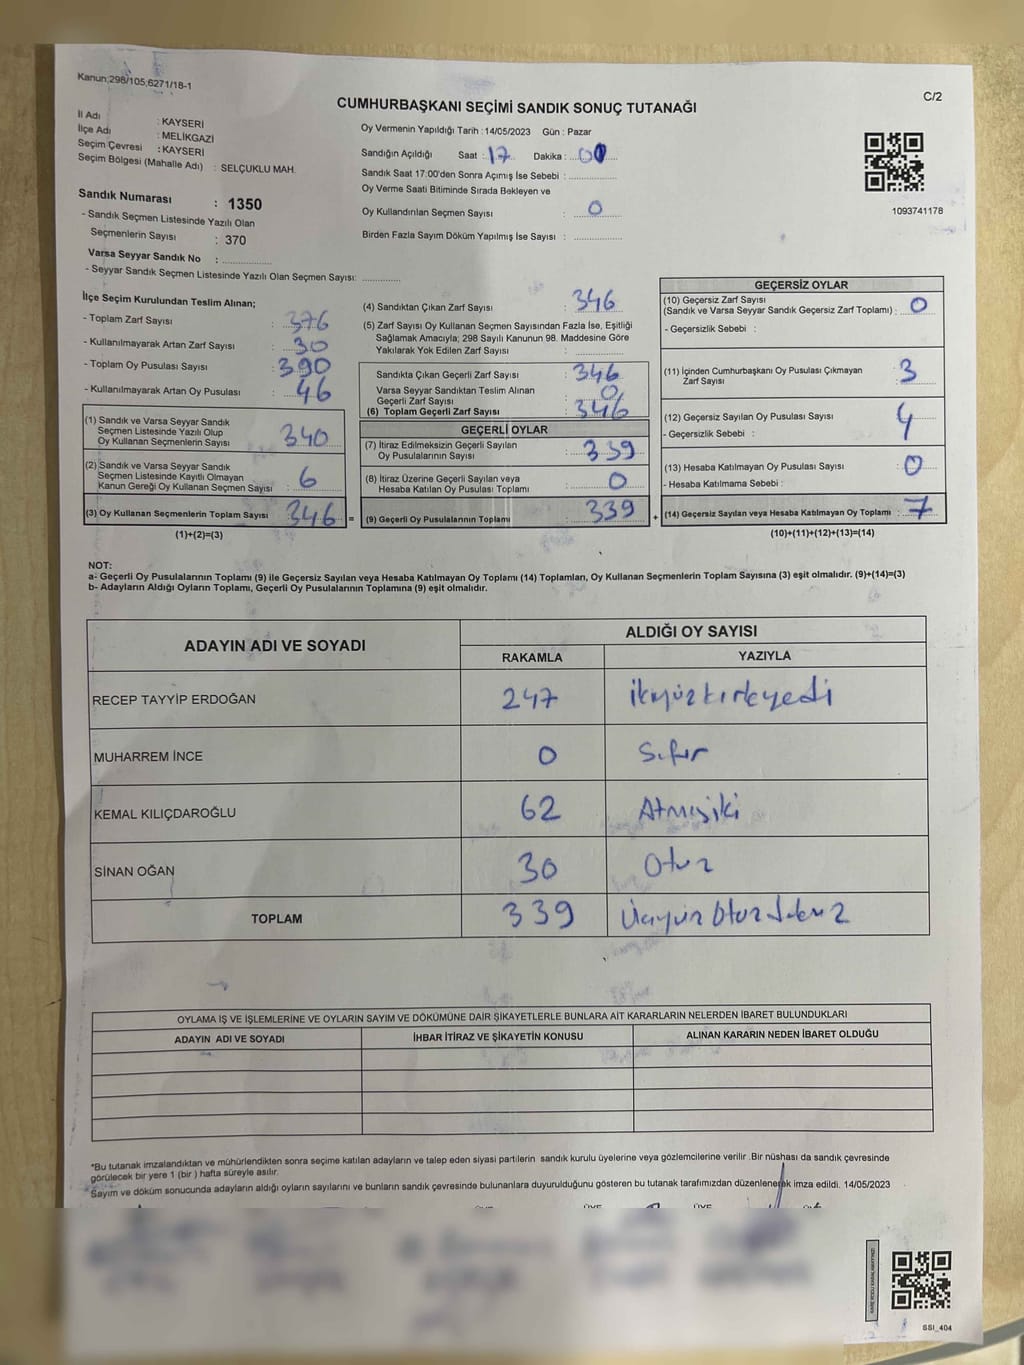 Kanun;298/105;6271/18-1
C/2
CUMHURBAŞKANI SEÇİMİ SANDIK SONUÇ TUTANAĞI
İl Adı : KAYSERİ
İlçe Adı : MELİKGAZİ
Seçim Çevresi : KAYSERİ
Seçim Bölgesi (Mahalle Adı) : SELÇUKLU MAH.
Sandık Numarası : 1350
- Sandık Seçmen Listesinde Yazılı Olan
Seçmenlerin Sayısı : 370
Varsa Seyyar Sandık No :
- Seyyar Sandık Seçmen Listesinde Yazılı Olan Seçmen Sayısı:
Oy Vermenin Yapıldığı Tarih : 14/05/2023 Gün : Pazar
Sandığın Açıldığı Saat : 17 Dakika : 00
Sandık Saat 17.00'den Sonra Açımış İse Sebebi :
Oy Verme Saati Bitiminde Sırada Bekleyen ve
Oy Kullandırılan Seçmen Sayısı : 0
Birden Fazla Sayım Döküm Yapılmış İse Sayısı :
1093741178
İlçe Seçim Kurulundan Teslim Alınan;
- Toplam Zarf Sayısı : 376
- Kullanılmayarak Artan Zarf Sayısı : 30
- Toplam Oy Pusulası Sayısı : 390
- Kullanılmayarak Artan Oy Pusulası : 46
(1) Sandık ve Varsa Seyyar Sandık
Seçmen Listesinde Yazılı Olup
Oy Kullanan Seçmenlerin Sayısı : 340
(2) Sandık ve Varsa Seyyar Sandık
Seçmen Listesinde Kayıtlı Olmayan
Kanun Gereği Oy Kullanan Seçmen Sayısı : 6
(3) Oy Kullanan Seçmenlerin Toplam Sayısı : 346 =
(1)+(2)=(3)
(4) Sandıktan Çıkan Zarf Sayısı : 346
(5) Zarf Sayısı Oy Kullanan Seçmen Sayısından Fazla İse, Eşitliği
Sağlamak Amacıyla; 298 Sayılı Kanunun 98. Maddesine Göre
Yakılarak Yok Edilen Zarf Sayısı :
Sandıkta Çıkan Geçerli Zarf Sayısı : 346
Varsa Seyyar Sandıktan Teslim Alınan
Geçerli Zarf Sayısı : 0
(6) Toplam Geçerli Zarf Sayısı : 346
GEÇERLİ OYLAR
(7) İtiraz Edilmeksizin Geçerli Sayılan
Oy Pusulalarının Sayısı : 339
(8) İtiraz Üzerine Geçerli Sayılan veya
Hesaba Katılan Oy Pusulası Toplamı : 0
(9) Geçerli Oy Pusulalarının Toplamı : 339 +
GEÇERSİZ OYLAR
(10) Geçersiz Zarf Sayısı
(Sandık ve Varsa Seyyar Sandık Geçersiz Zarf Toplamı) : 0
- Geçersizlik Sebebi :
(11) İçinden Cumhurbaşkanı Oy Pusulası Çıkmayan
Zarf Sayısı : 3
(12) Geçersiz Sayılan Oy Pusulası Sayısı : 4
- Geçersizlik Sebebi :
(13) Hesaba Katılmayan Oy Pusulası Sayısı : 0
- Hesaba Katılmama Sebebi :
(14) Geçersiz Sayılan veya Hesaba Katılmayan Oy Toplamı : 7
(10)+(11)+(12)+(13)=(14)
NOT:
a- Geçerli Oy Pusulalarının Toplamı (9) ile Geçersiz Sayılan veya Hesaba Katılmayan Oy Toplamı (14) Toplamları, Oy Kullanan Seçmenlerin Toplam Sayısına (3) eşit olmalıdır. (9)+(14)=(3)
b- Adayların Aldığı Oyların Toplamı, Geçerli Oy Pusulalarının Toplamına (9) eşit olmalıdır.
ADAYIN ADI VE SOYADI ALDIĞI OY SAYISI
RAKAMLA YAZIYLA
RECEP TAYYİP ERDOĞAN 247 ikiyüzkırkyedi
MUHARREM İNCE 0 Sıfır
KEMAL KILIÇDAROĞLU 62 Atmışiki
SİNAN OĞAN 30 Otuz
TOPLAM 339 Üçyüz Otuz
OYLAMA İŞ VE İŞLEMLERİNE VE OYLARIN SAYIM VE DÖKÜMÜNE DAİR ŞİKAYETLERLE BUNLARA AİT KARARLARIN NELERDEN İBARET BULUNDUKLARI
ADAYIN ADI VE SOYADI İHBAR İTİRAZ VE ŞİKAYETİN KONUSU ALINAN KARARIN NEDEN İBARET OLDUĞU
*Bu tutanak imzalandıktan ve mühürlendikten sonra seçime katılan adayların ve talep eden siyasi partilerin sandık kurulu üyelerine veya gözlemcilerine verilir .Bir nüshası da sandık çevresinde
görülecek bir yere 1 (bir ) hafta süreyle asılır.
*Sayım ve döküm sonucunda adayların aldığı oyların sayılarını ve bunların sandık çevresinde bulunanlara duyurulduğunu gösteren bu tutanak tarafımızdan düzenlenerek imza edildi. 14/05/2023
SSI_404